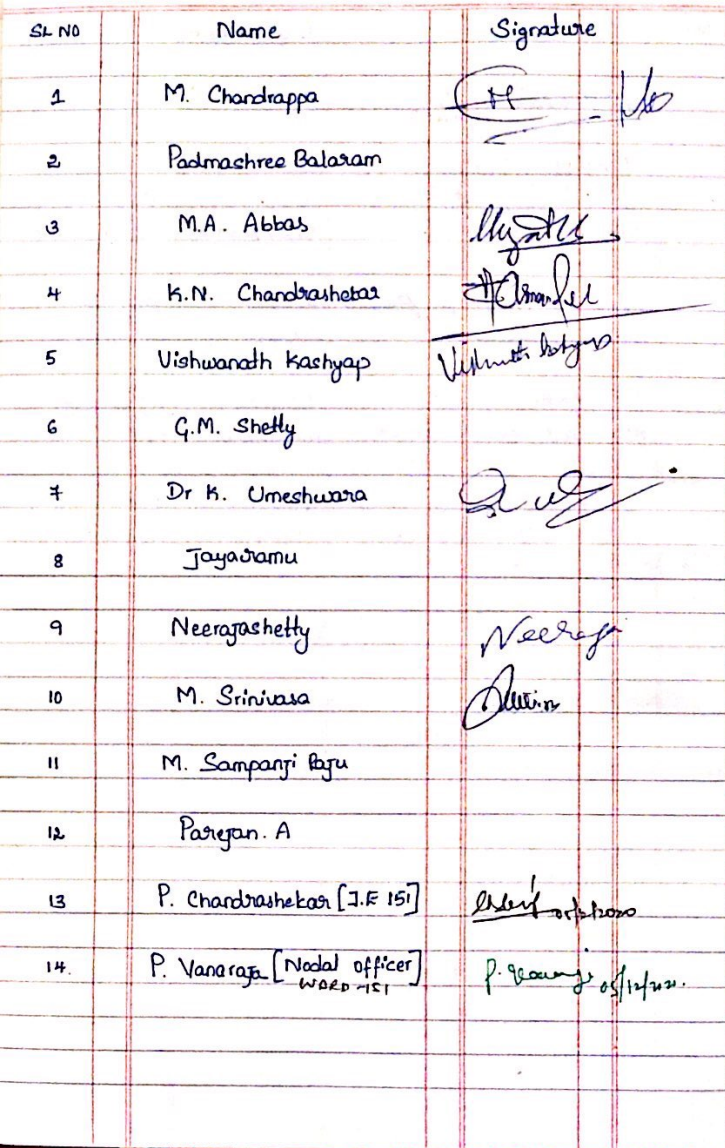 SL NO Name Signature
1 M. Chandrappa
2 Padmashree Balaram
3 M.A. Abbas
4 K.N. Chandrashekar
5 Vishwanath Kashyap
6 G.M. Shetty
7 Dr K. Umeshwara
8 Jayaramu
9 Neerajashetty Neeraja
10 M. Srinivasa
11 M. Sampangi Raju
12 Parejan. A
13 P. Chandrashekar [J.E 151]
14. P. Vanaraja [Nodal officer] 05/12/2020.
WARD-151